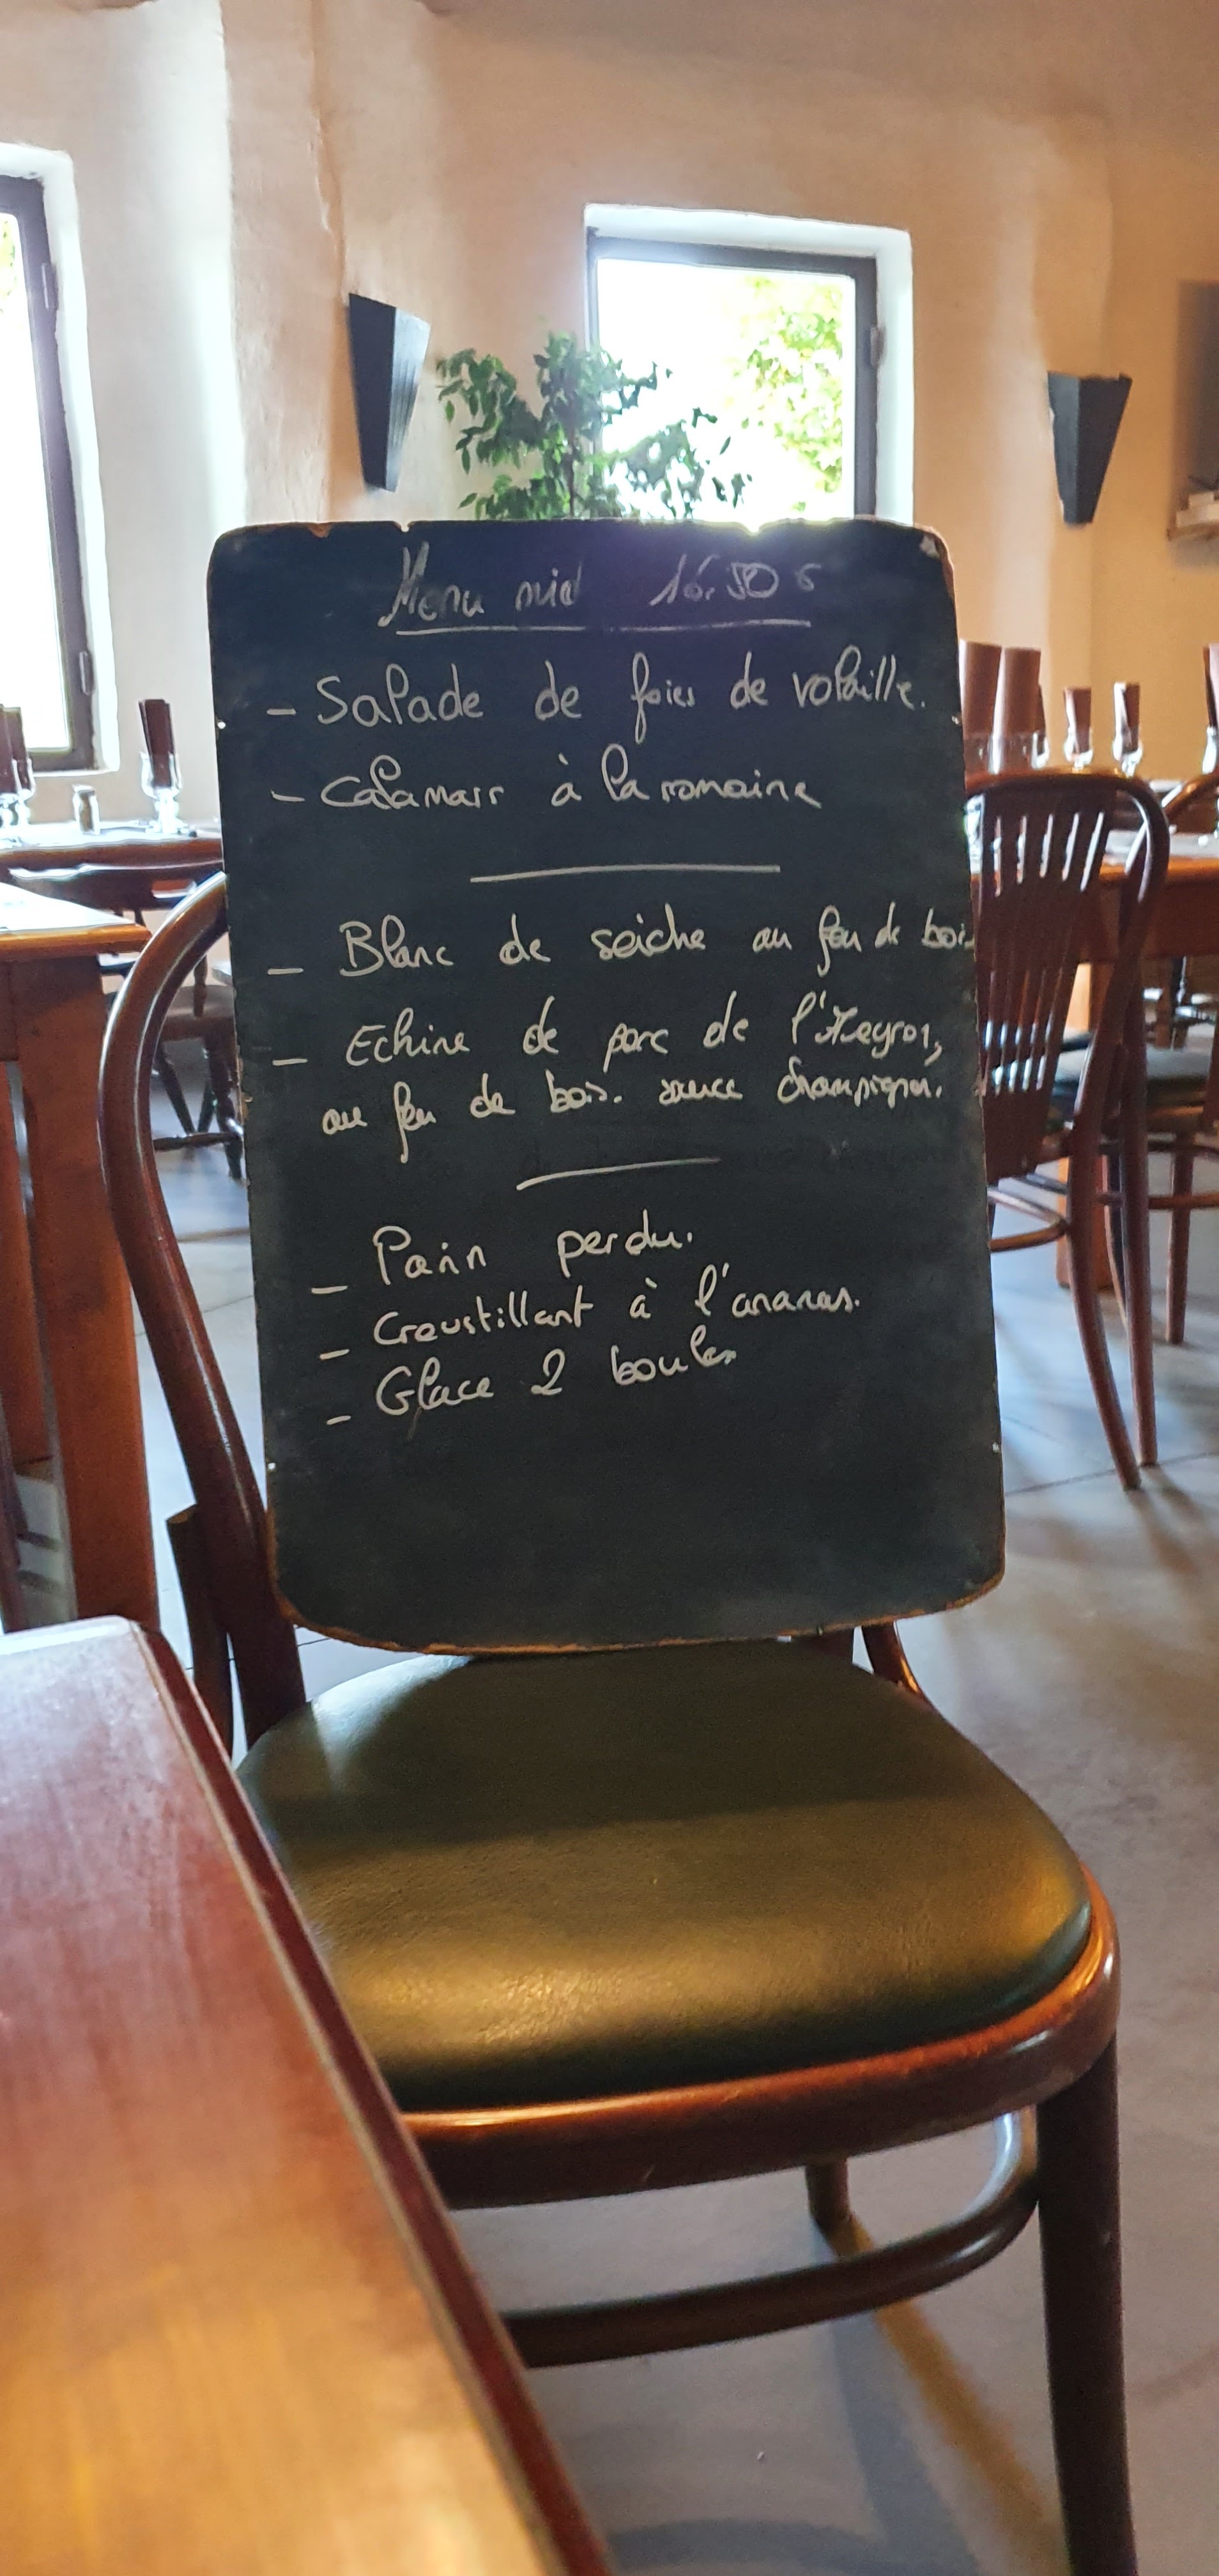 Menu midi 16.50 €
- Salade de foies de volaille.
- Calamars à la romaine
- Blanc de seiche au feu de bois
- Echine de porc de l'Aveyron,
au feu de bois. sauce champignon.
- Pain perdu.
- Croustillant à l'ananas.
- Glace 2 boules